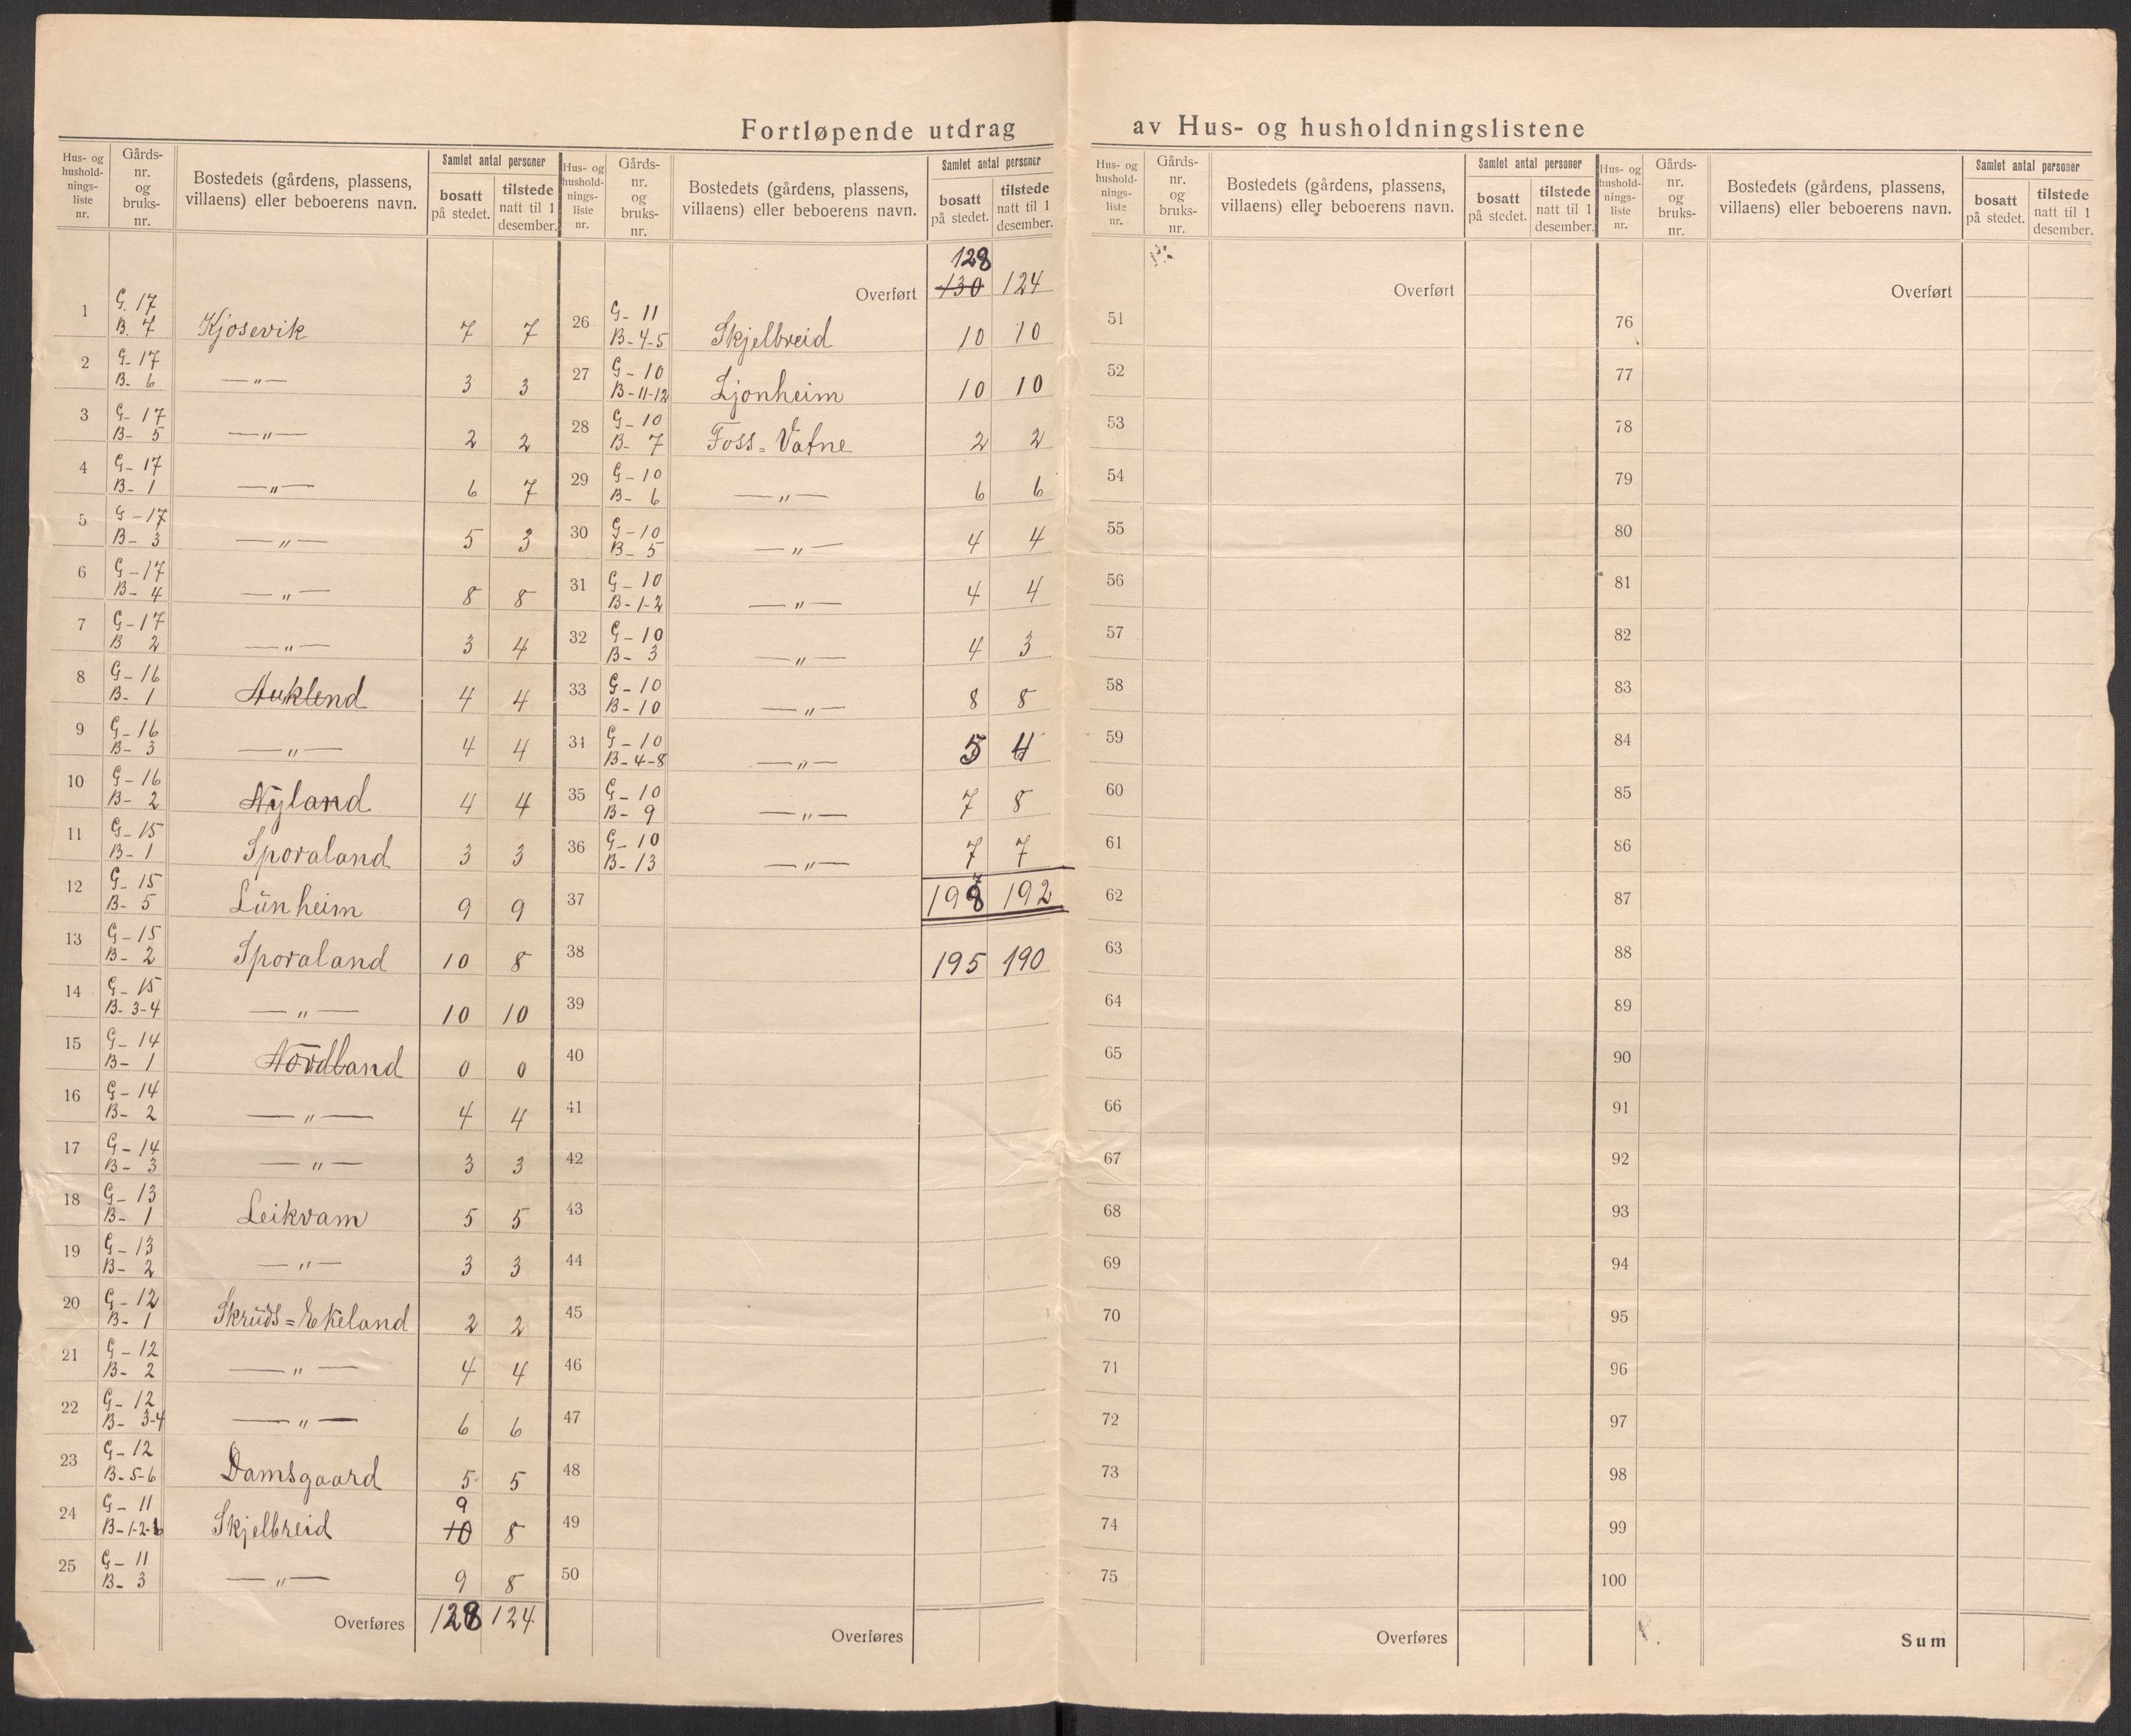 Fortløpende utdrag av Hus- og husholdningslistene
Hus- og husholdnings-liste nr. | Gårds-nr. og bruks-nr. | Bostedets (gårdens, plassens, villaens) eller beboerens navn. | Samlet antal personer | bosatt på stedet. | tilstede natt til 1 desember.
1 G. 17 B. 7 Kjosevik 7 7
2 G- 17 B- 6 —〃— 3 3
3 G- 17 B- 5 —〃— 2 2
4 G- 17 B- 1 —〃— 6 7
5 G-17 B- 3 —〃— 5 3
6 G-17 B- 4 —〃— 8 8
7 G-17 B 2 —〃— 3 4
8 G-16 B- 1 Auklend 4 4
9 G-16 B- 3 —〃— 4 4
10 G-16 B- 2 Nyland 4 4
11 G-15 B- 1 Sporaland 3 3
12 G-15 B- 5 Lünheim 9 9
13 G-15 B- 2 Sporaland 10 8
14 G-15 B-3-4 —〃— 10 10
15 G-14 B- 1 Nordland 0 0
16 G-14 B- 2 —〃— 4 4
17 G-14 B- 3 —〃— 3 3
18 G-13 B- 1 Leikvam 5 5
19 G-13 B- 2 —〃— 3 3
20 G-12 B- 1 Skrüds=Ekeland 2 2
21 G-12 B- 2 —〃— 4 4
22 G-12 B- 3-4 —〃— 6 6
23 G-12 B-5-6 Damsgaard 5 5
24 G- 11 B-1-2-6 Skjelbreid 9 10 8
25 G- 11 B- 3 —〃— 9 8
Overføres 128 124
Hus- og husholdnings-liste nr. | Gårds-nr. og bruks-nr. | Bostedets (gårdens, plassens, villaens) eller beboerens navn. | Samlet antal personer | bosatt på stedet. | tilstede natt til 1 desember.
128
Overført 130 124
26 G- 11 B-4-5 Skjelbreid 10 10
27 G-10 B-11-12 Ljonheim 10 10
28 G-10 B- 7 Foss=Vatne 2 2
29 G-10 B- 6 —〃— 6 6
30 G-10 B- 5 —〃— 4 4
31 G-10 B-1-2 —〃— 4 4
32 G-10 B- 3 —〃— 4 3
33 G-10 B-10 —〃— 8 8
34 G-10 B-4-8 —〃— 5 4
35 G-10 B- 9 —〃— 7 8
36 G-10 B-13 —〃— 7 7
37 198 192
38 195 190
39
40
41
42
43
44
45
46
47
48
49
50
Overføres
Hus- og husholdnings-liste nr. | Gårds-nr. og bruks-nr. | Bostedets (gårdens, plassens, villaens) eller beboerens navn. | Samlet antal personer | bosatt på stedet. | tilstede natt til 1 desember.
Overført
51
52
53
54
55
56
57
58
59
60
61
62
63
64
65
66
67
68
69
70
71
72
73
74
75
Overføres
Hus- og husholdnings-liste nr. | Gårds-nr. og bruks-nr. | Bostedets (gårdens, plassens, villaens) eller beboerens navn. | Samlet antal personer | bosatt på stedet. | tilstede natt til 1 desember.
Overført
76
77
78
79
80
81
82
83
84
85
86
87
88
89
90
91
92
93
94
95
96
97
98
99
100
Sum